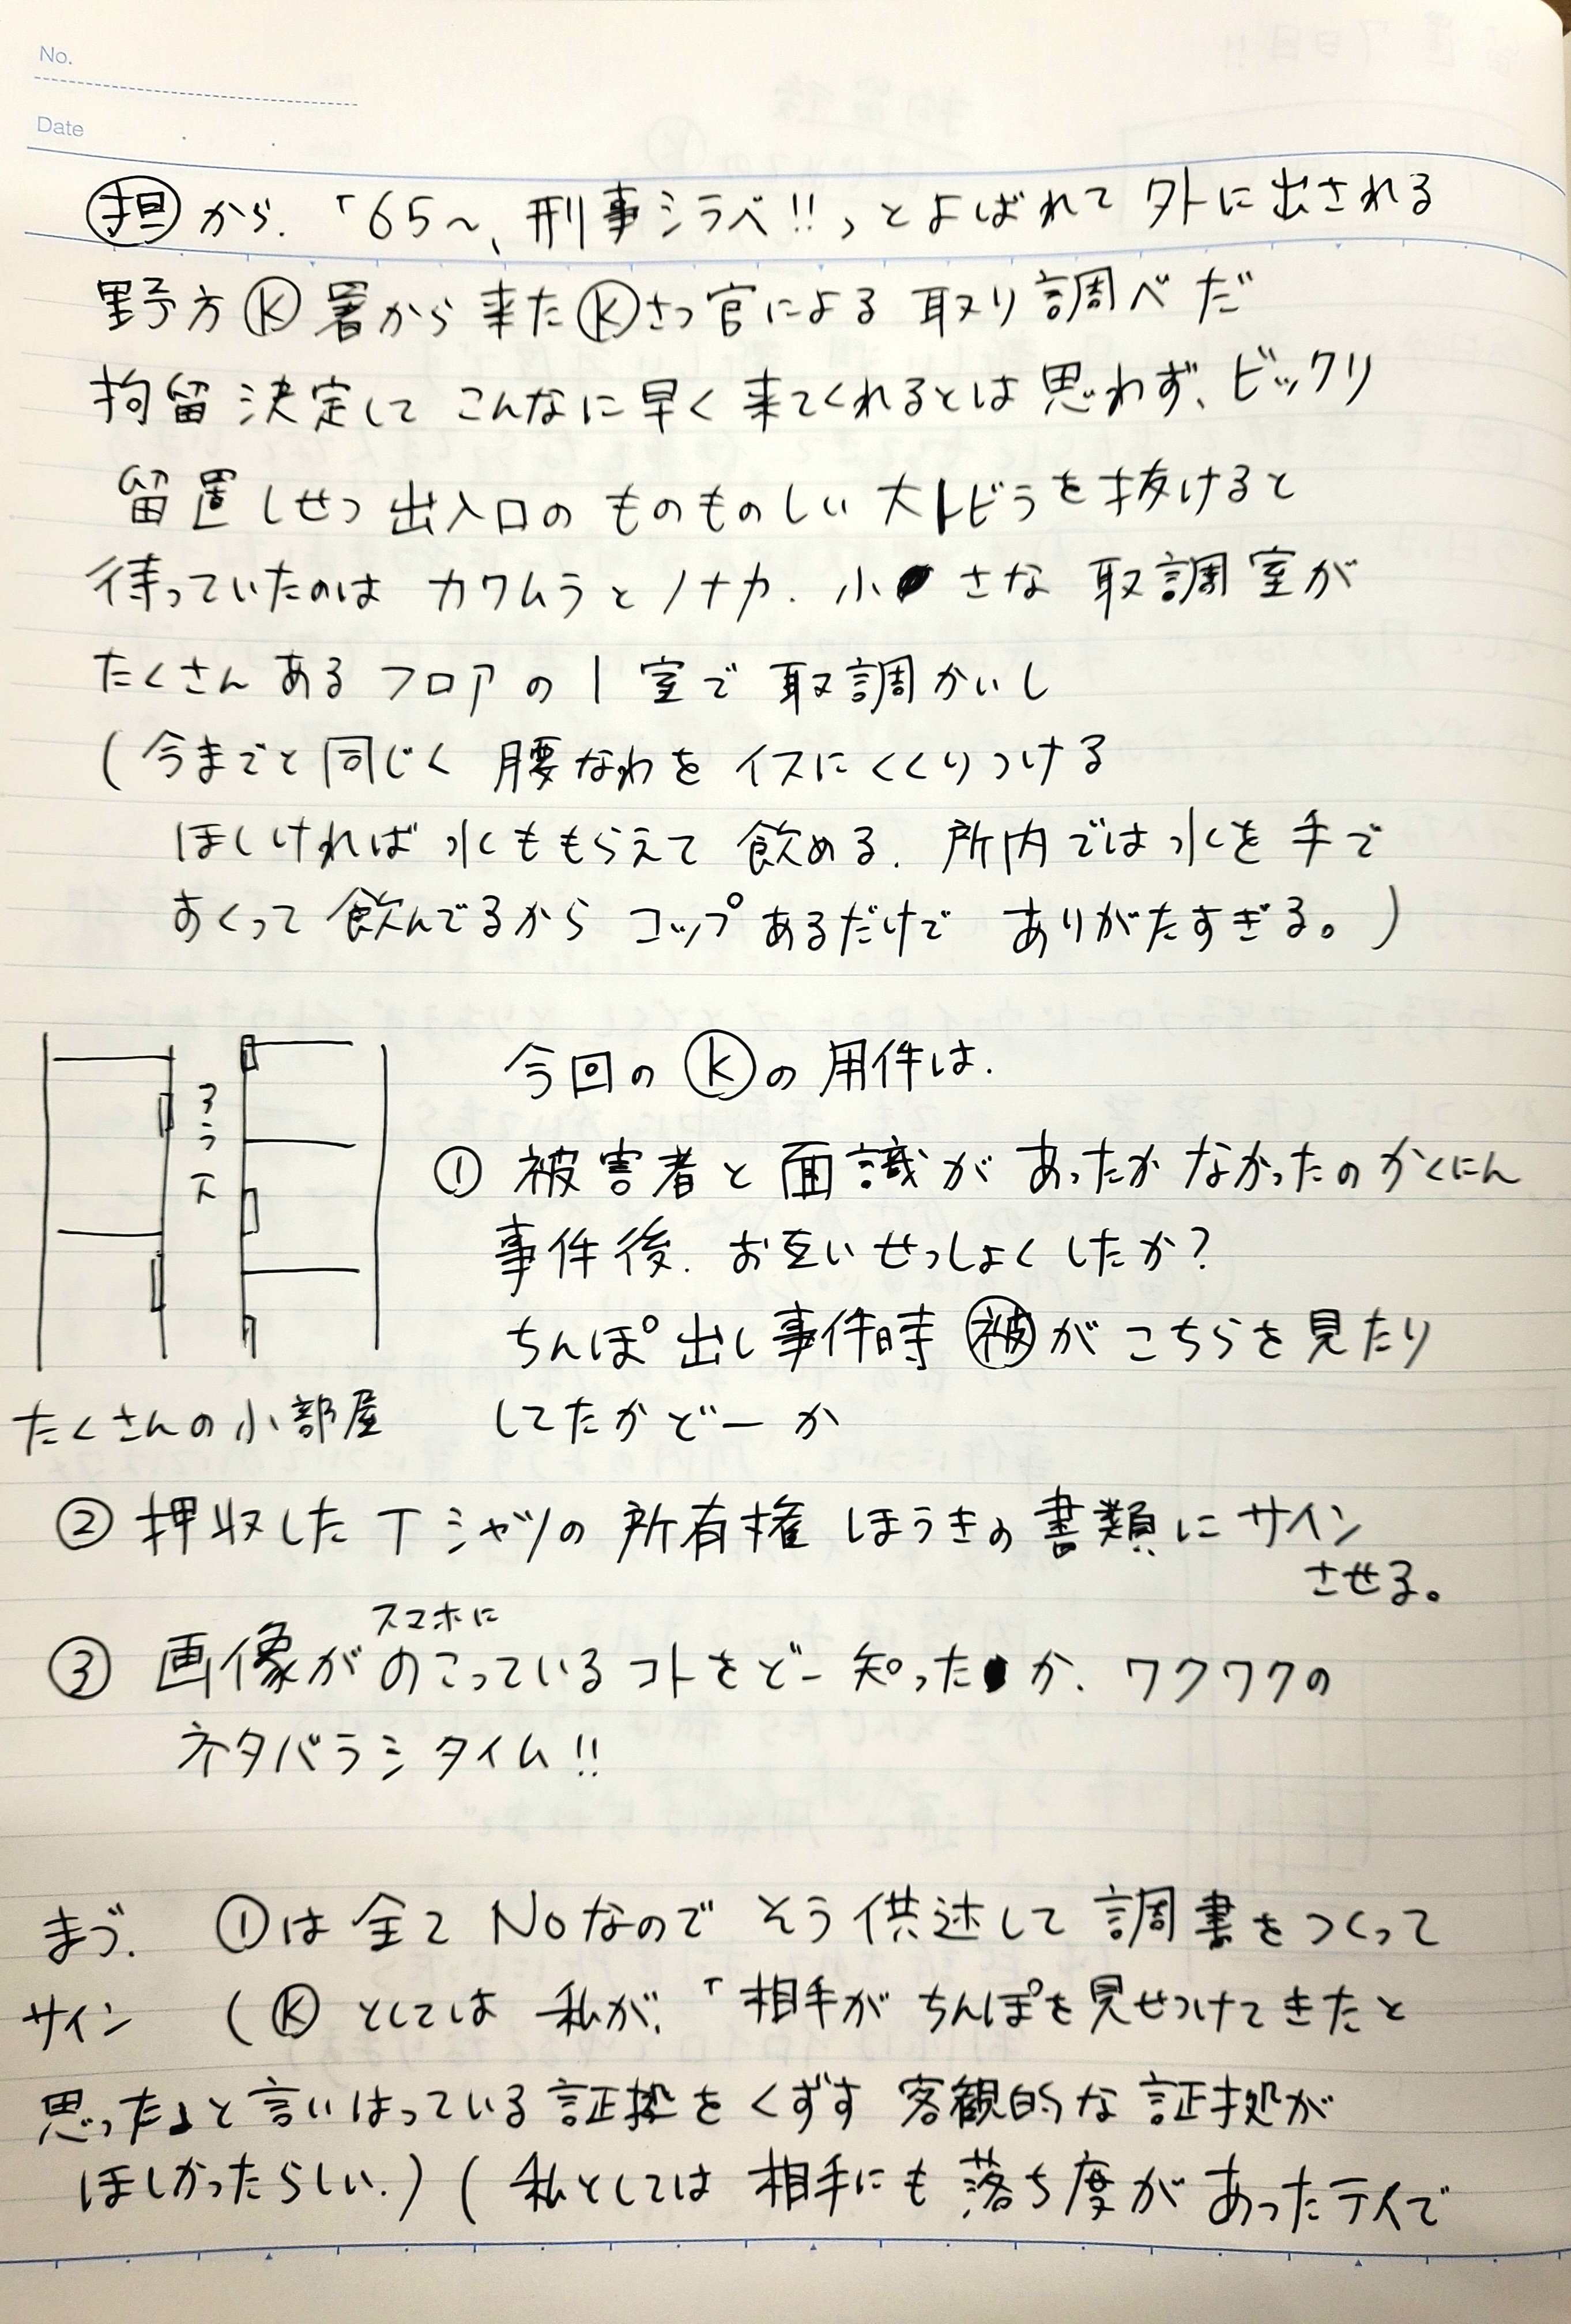 No.
Date
担から.「65～、刑事シラベ!!」とよばれて 外に出される
野方Ⓚ署から来たⓀさつ官による取り調べだ
拘留決定して こんなに早く来てくれるとは思わず、ビックリ
留置しせつ出入口の ものものしい大トビラを抜けると
待っていたのは カワムラとノナカ. 小さな 取調室が
たくさんあるフロアの1室で取調かいし
(今までと同じく 腰なわを イスにくくりつける
ほしければ水ももらえて飲める. 所内では水を手で
すくって飲んでるから コップあるだけで ありがたすぎる。)
今回のⓀの用件は.
① 被害者と面識が あったかなかったのかくにん
事件後. お互いせっしょくしたか?
ちんぽ出し事件時 被が こちらを見たり
してたかどーか
たくさんの小部屋
② 押収したTシャツの所有権 ほうきの書類にサイン
させる。
③ 画像が スマホに のこっているコトをどー知ったか. ワクワクの
ネタバラシタイム!!
まず. ①は全てNoなので そう供述して調書をつくって
サイン (Ⓚとしては 私が.「相手が ちんぽを見せつけてきたと
思った」と言いはっている証拠をくずす 客観的な証拠が
ほしかったらしい.) (私としては相手にも落ち度があったテイで